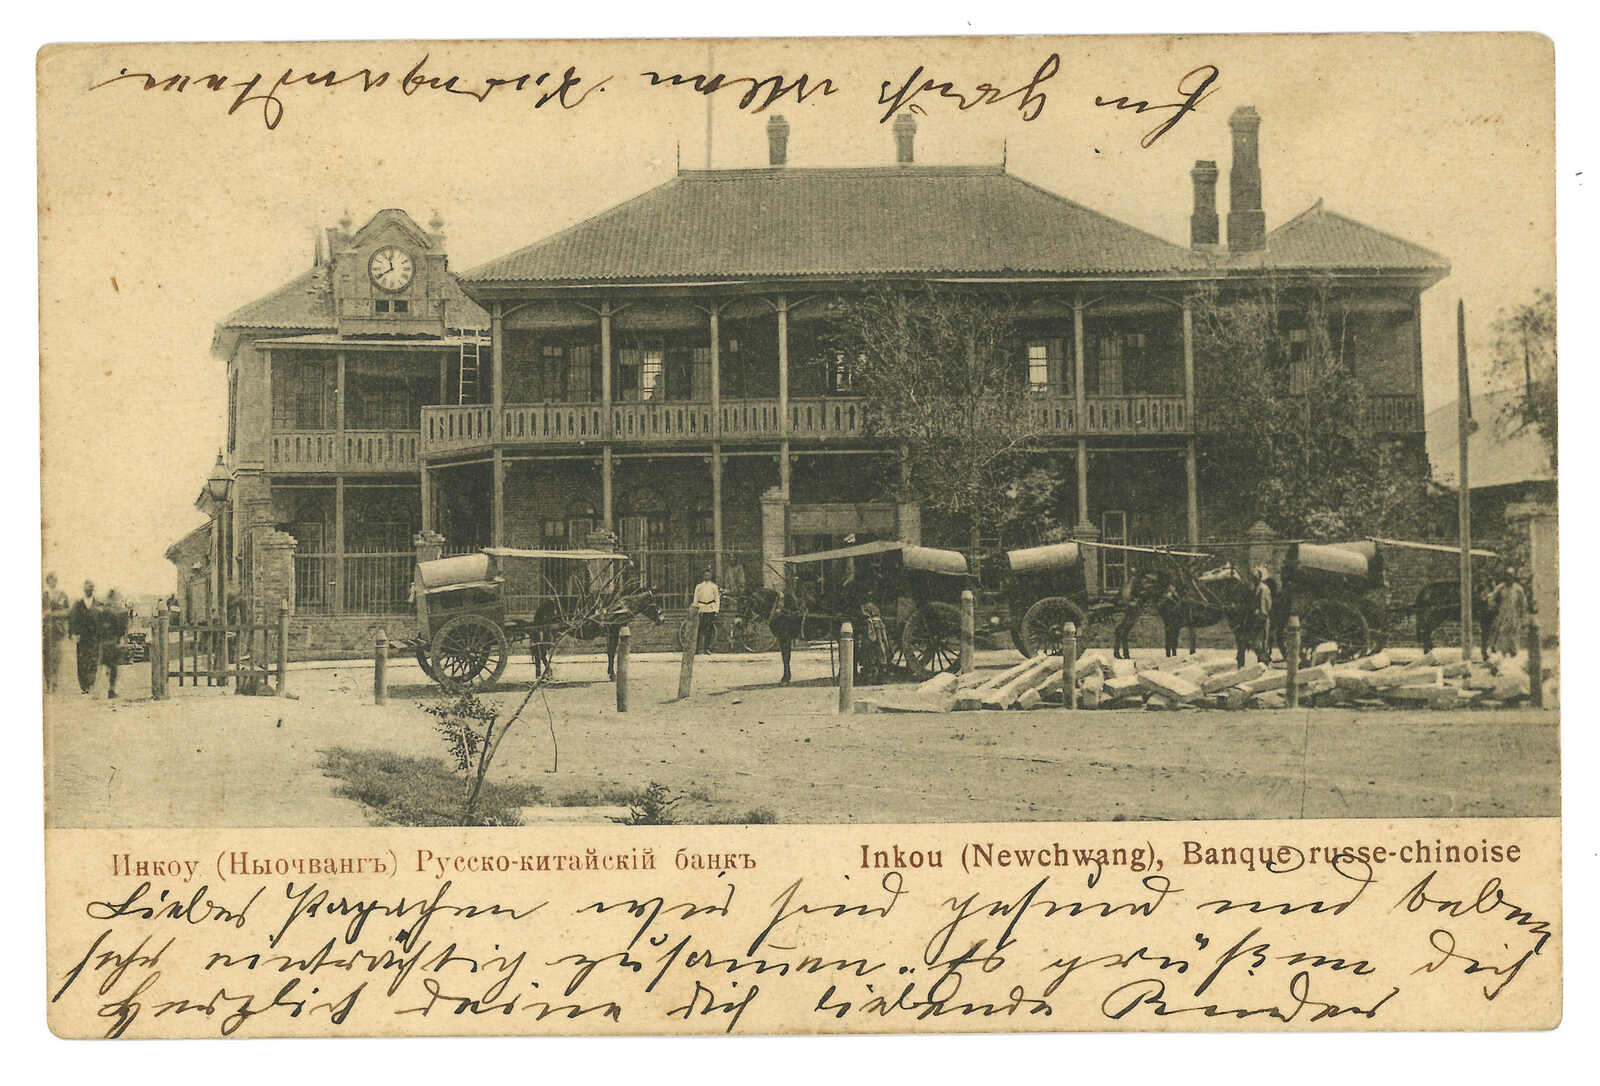 Инкоу (Ныочвангъ) Русско-китайскій банкъ
Inkou (Newchwang), Banque russe-chinoise
Liebes Papachen wir sind gesund und leben
sehr einträchtig zusammen. Es grüßen dich
Herzlich deine dich liebende Kinder